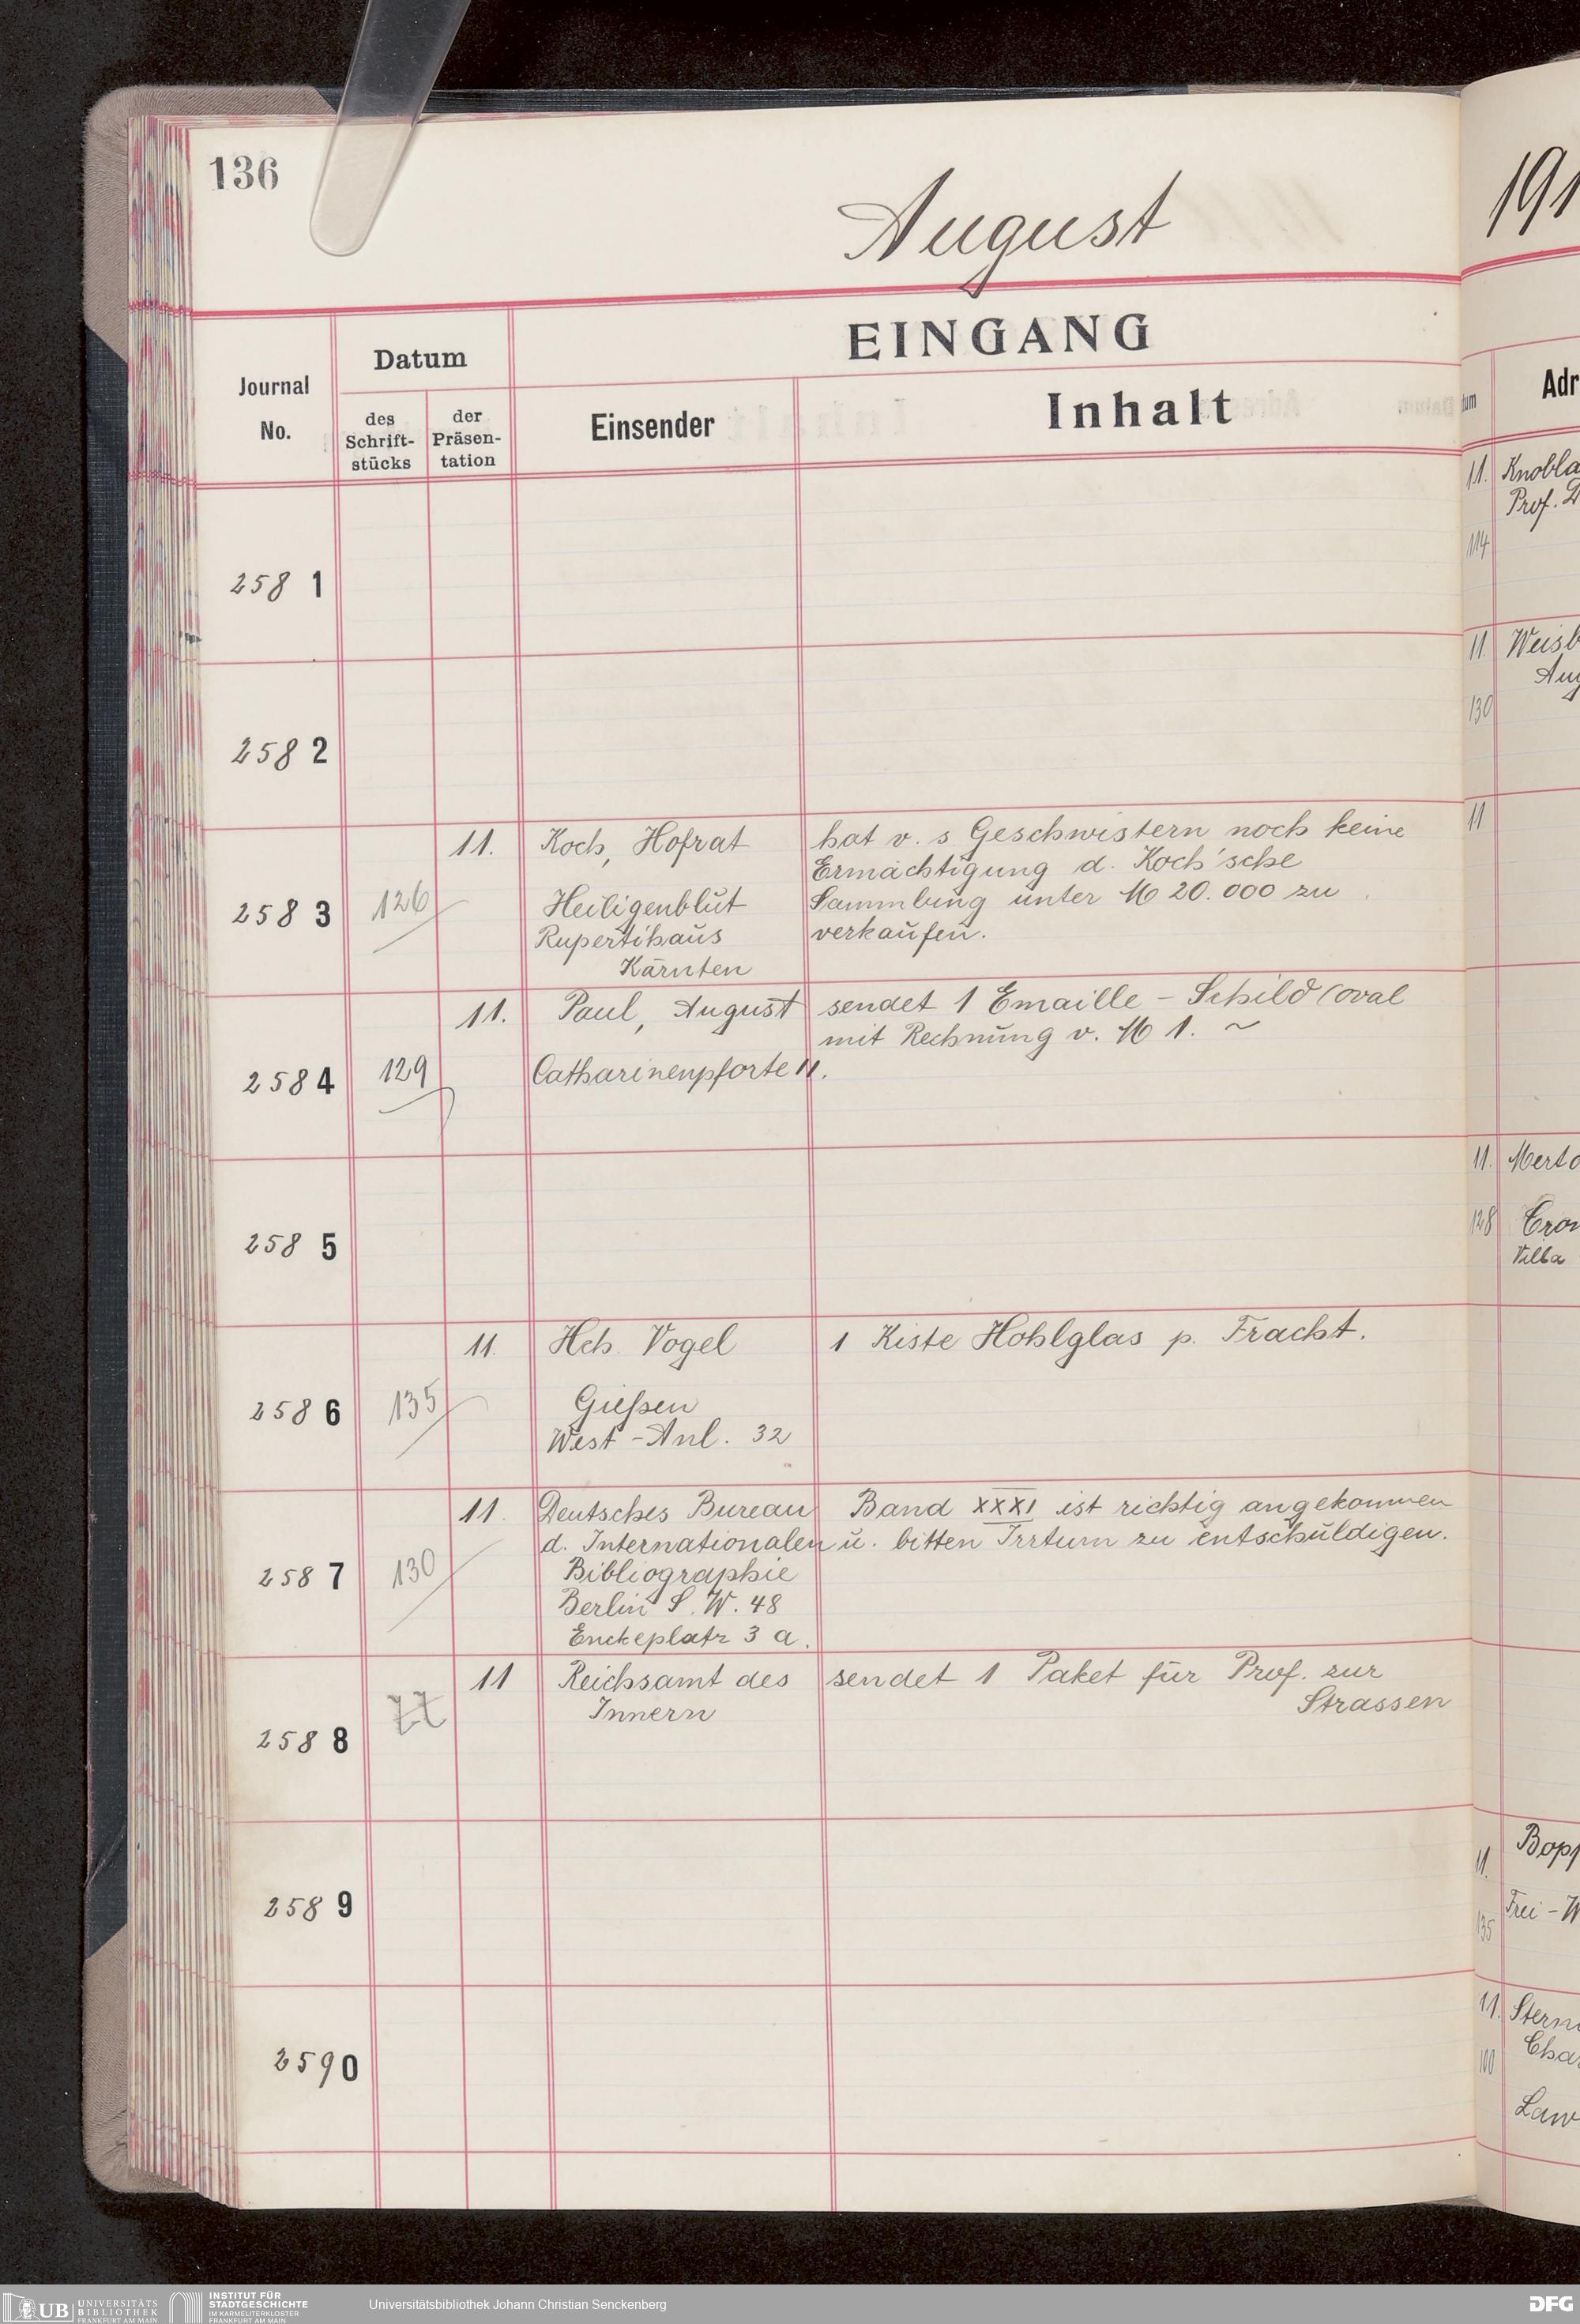 136
August
191
EINGANG
Datum
Journal
No.
des
Schrift-
stücks
der
Präsen-
tation
Einsender
Inhalt
Adr
258 1
258 2
258 3
126
11.
Koch, Hofrat
Heiligenblut
Rupertihaus
Kärnten
hat v. s. Geschwistern noch keine
Ermächtigung d. Koch'sche
Sammlung unter M 20.000 zu
verkaufen.
258 4
129
11.
Paul, August
Catharinenpforte 11.
sendet 1 Emaille - Schild (oval
mit Rechnung v. M 1. ~
258 5
258 6
135
11.
Hch. Vogel
Gießen
West-Anl. 32
1 Kiste Hohlglas p. Fracht.
258 7
130
11.
Deutsches Bureau
d. Internationalen
Bibliographie
Berlin S. W. 48
Enckeplatz 3 a.
Band XXXI ist richtig angekommen
u. bitten Irrtum zu entschuldigen.
258 8
11
Reichsamt des
Innern
sendet 1 Paket für Prof. zur
Strassen
258 9
259 0
tum
11. Knobla
Prof. D
114
11. Weisb
Aug
130
11
11. Merto
128 Cron
Villa
11. Bopp
Frei - W
135
11. Stern
Cha
100
Law
UB UNIVERSITÄTS
BIBLIOTHEK
FRANKFURT AM MAIN
INSTITUT FÜR
STADTGESCHICHTE
IM KARMELITERKLOSTER
FRANKFURT AM MAIN
Universitätsbibliothek Johann Christian Senckenberg
DFG